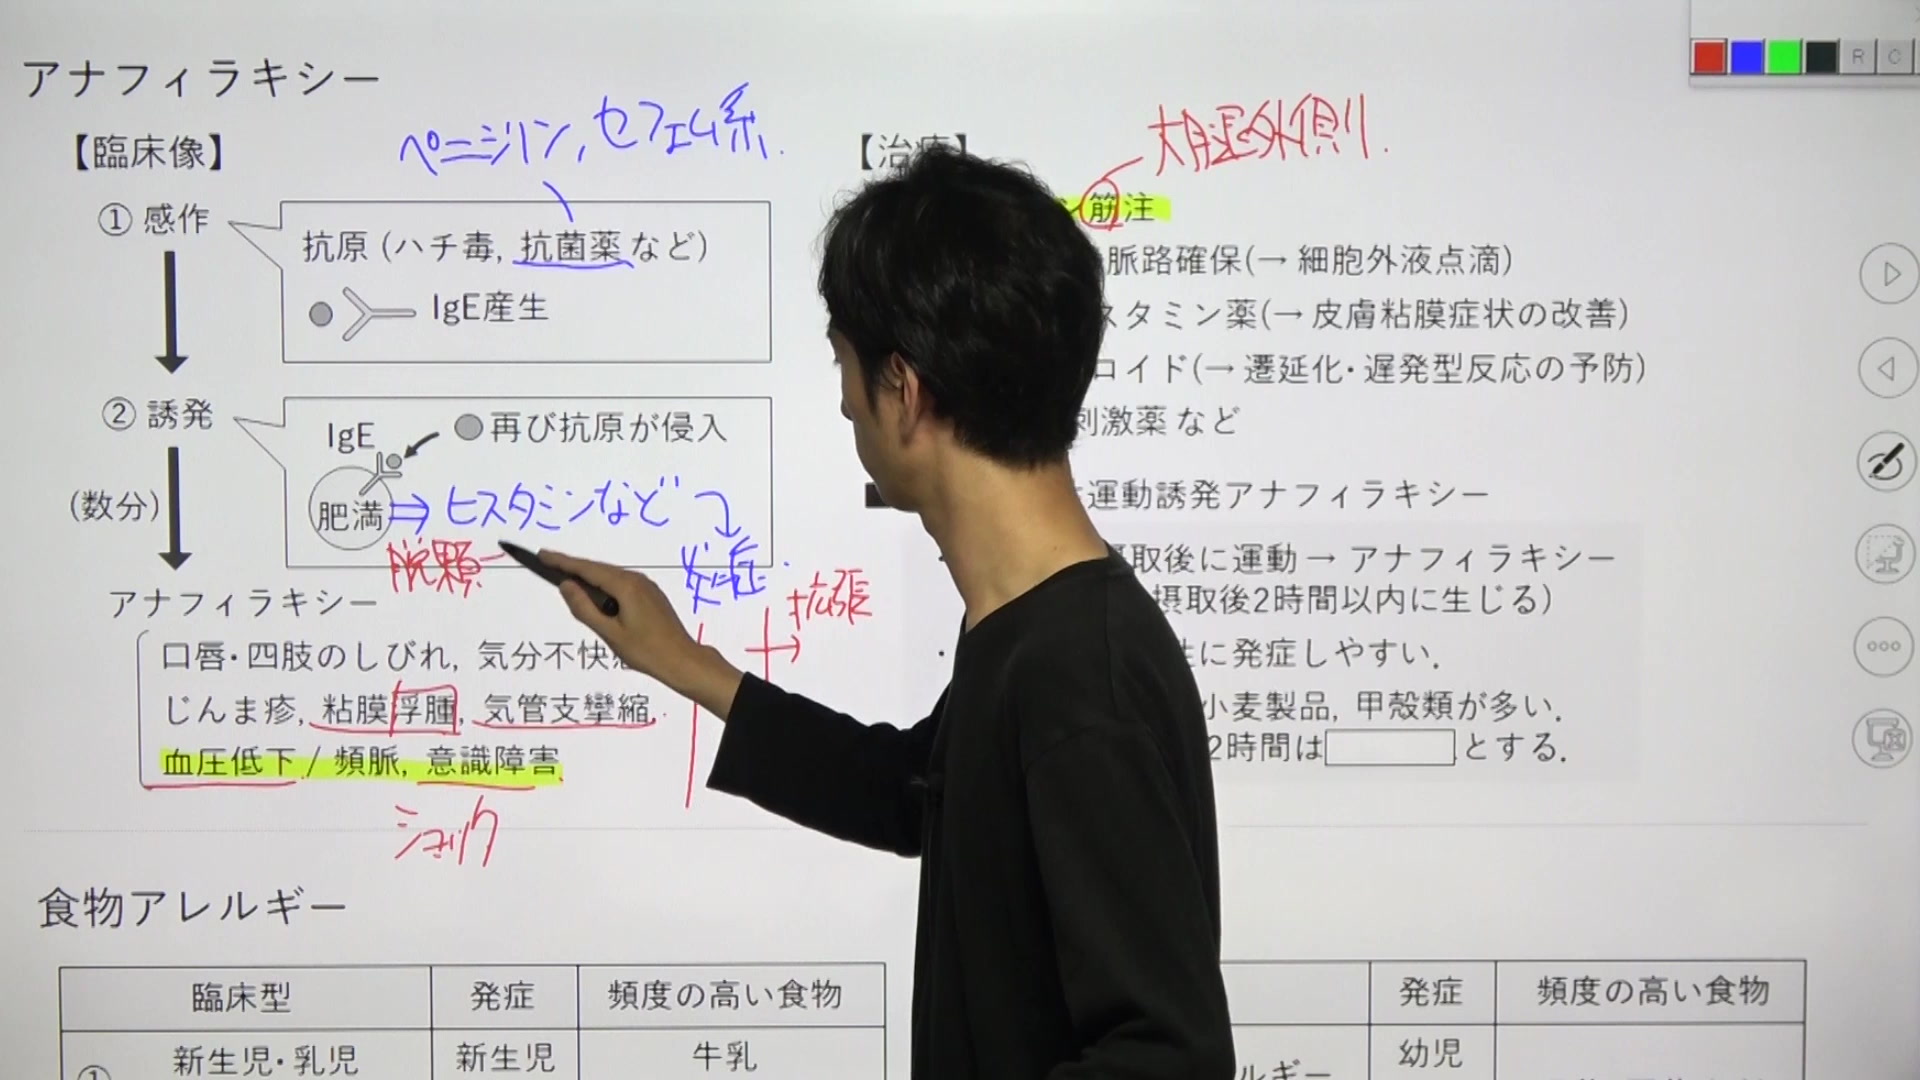 アナフィラキシー
【臨床像】
ペニシリン, セフェム系.
① 感作
抗原 (ハチ毒, 抗菌薬 など)
IgE産生
② 誘発
IgE
再び抗原が侵入
(数分)
肥満 ⇒ ヒスタミンなど
脱顆
炎症.
拡張
アナフィラキシー
口唇・四肢のしびれ, 気分不快
じんま疹, 粘膜浮腫, 気管支攣縮.
血圧低下 / 頻脈, 意識障害
ショック
【治療】
大腿外側.
筋注
脈路確保(→ 細胞外液点滴)
スタミン薬(→ 皮膚粘膜症状の改善)
ロイド(→ 遷延化・遅発型反応の予防)
刺激薬 など
運動誘発アナフィラキシー
取後に運動 → アナフィラキシー
摂取後2時間以内に生じる)
性に発症しやすい.
小麦製品, 甲殻類が多い.
2時間は とする.
食物アレルギー
臨床型 発症 頻度の高い食物
① 新生児・乳児 新生児 牛乳
発症 頻度の高い食物
ルギー 幼児
R C